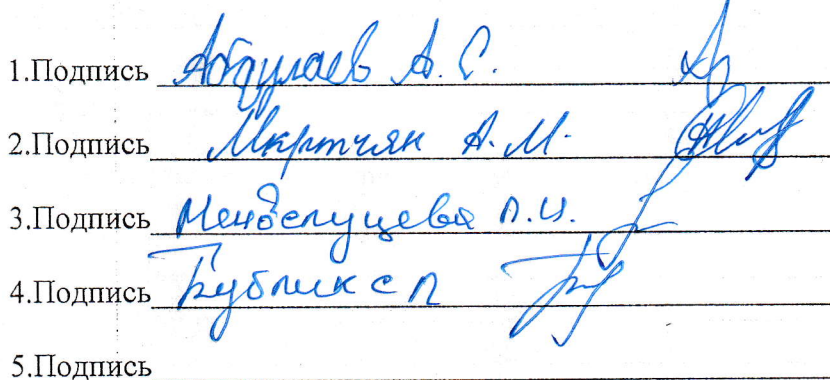 1.Подпись Абдулаев А. С.
2.Подпись Мкртчян А. М.
3.Подпись П.И.
4.Подпись Бублик С П
5.Подпись